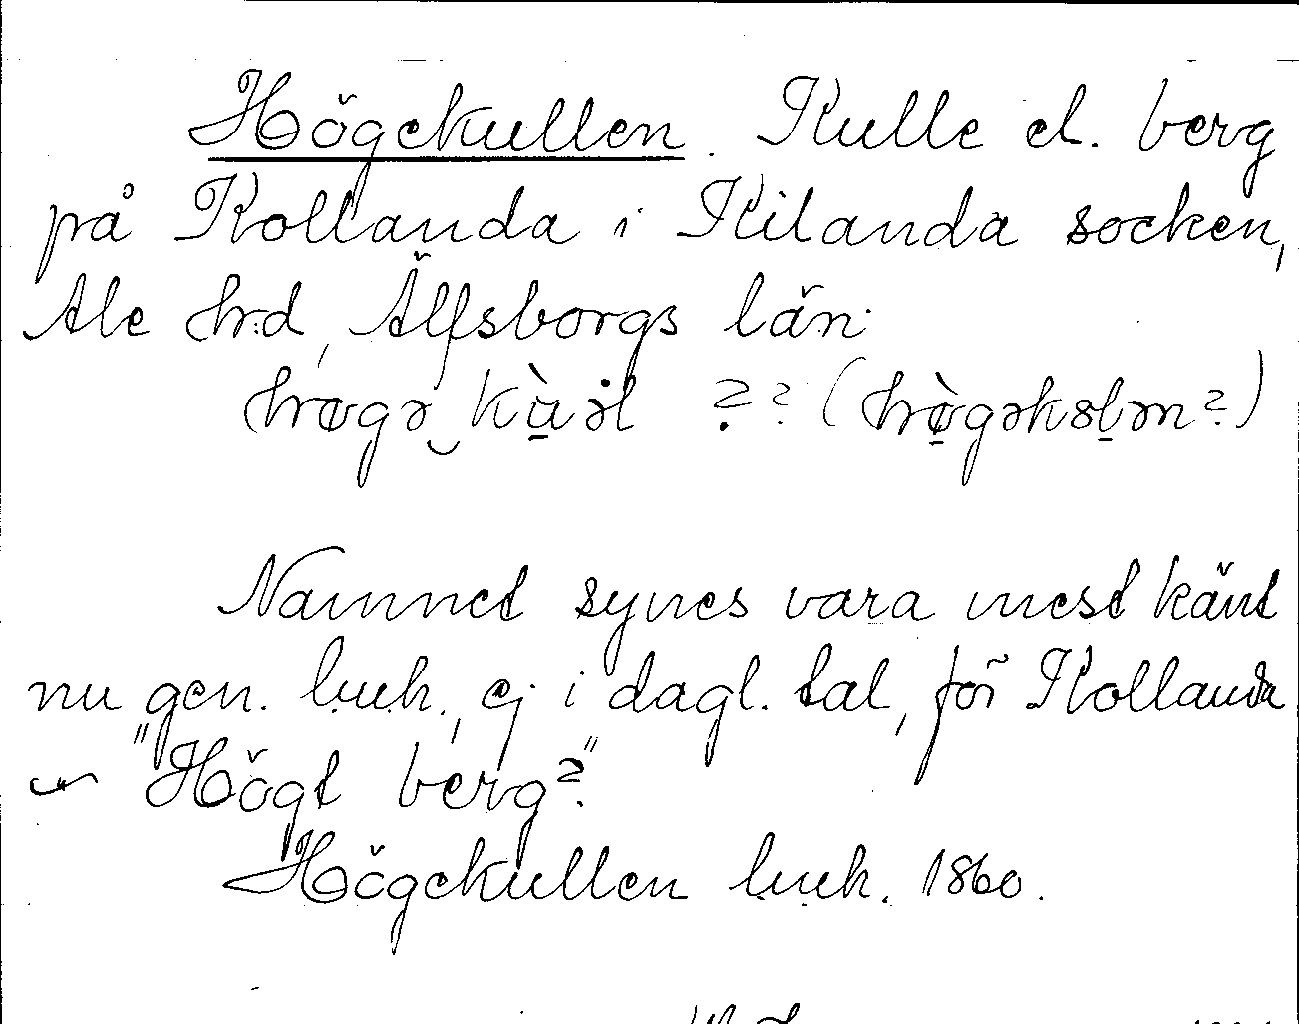 Högekullen. Kulle el. berg
på Kollanda i Kilanda socken,
Ale hrd, Älfsborgs län.
?? (              ?)
Namnet synes vara mest känt
nu gen. l.u.k., ej i dagl. tal, för Kollanda
"Högt berg?"
Högekullen l.u.k. 1860.